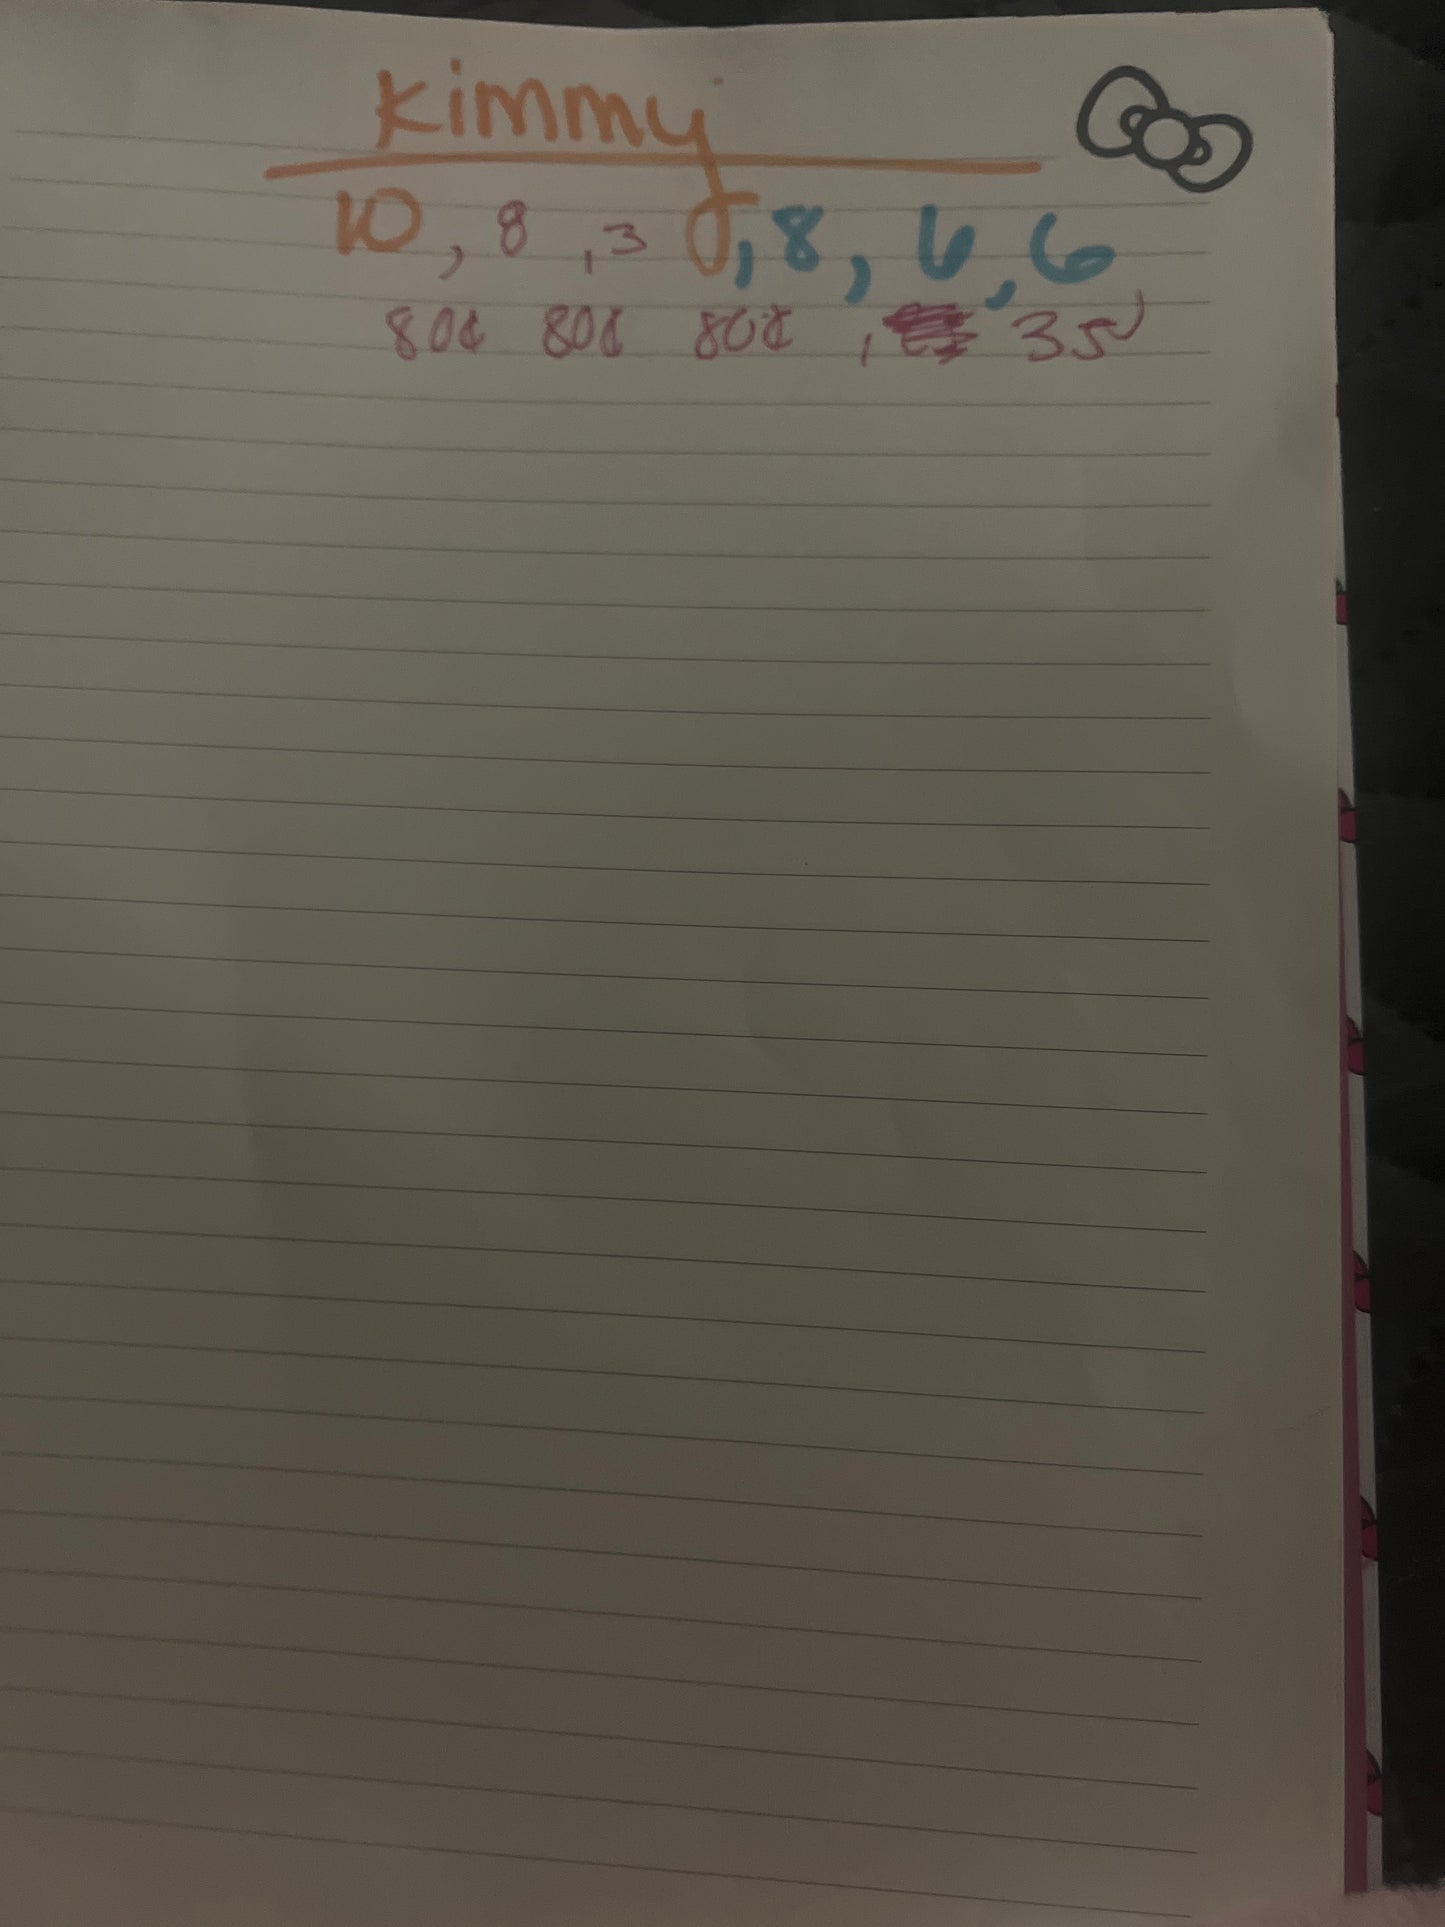 Kimmy
10, 8, 3, 8, 6, 6
80¢ 80¢ 80¢, 35